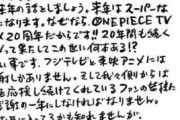 来年の話としましょう。来年はスーパーな
なります。なぜなら、ONEPIECE TV
X20周年だからです!!20年間も続く
メって果たしてこの世に何本ある!?
い事です。フジテレビと東映アニメには
謝しかありません。そして我々側からは
も応援し続けてくれているファンの皆様に
謝の一年にしなければなりません。
かも知れませんが、